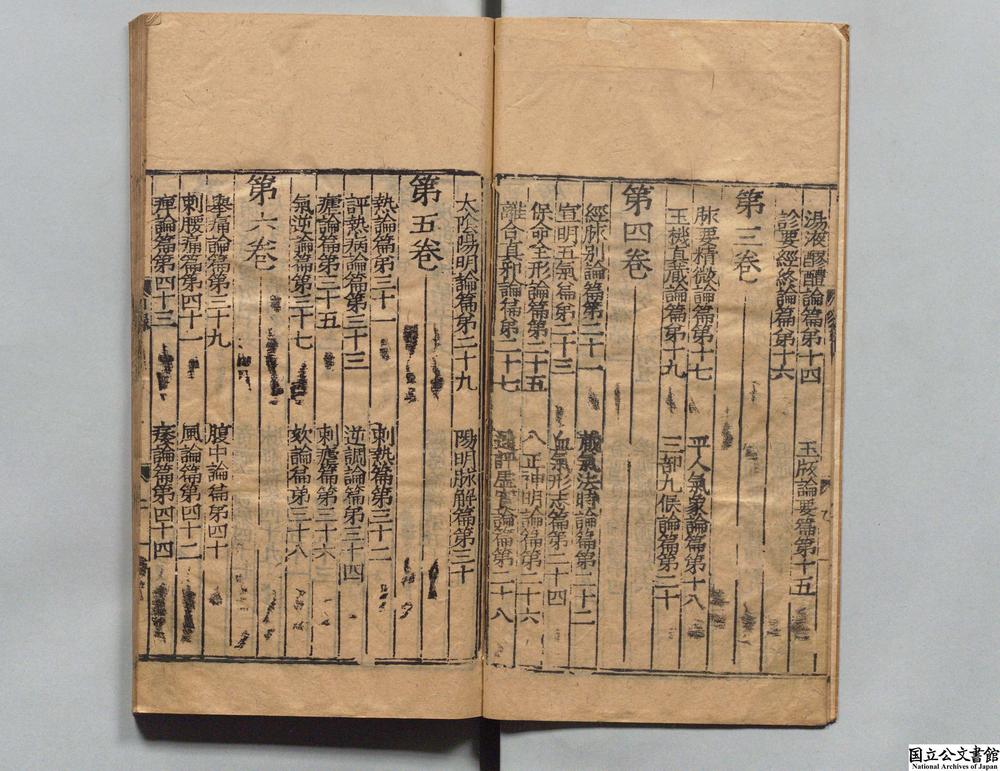 湯液醪醴論篇第十四　玉版論要篇第十五
診要經終論篇第十六
第三卷
脉要精微論篇第十七　平人氣象論篇第十八
玉機真藏論篇第十九　三部九候論篇第二十
第四卷
經脉別論篇第二十一　藏氣法時論篇第二十二
宣明五氣篇第二十三　血氣形志篇第二十四
保命全形論篇第二十五　八正神明論篇第二十六
離合真邪論篇第二十七　通評虛實論篇第二十八
太陰陽明論篇第二十九　陽明脉解篇第三十
第五卷
熱論篇第三十一　刺熱篇第三十二
評熱病論篇第三十三　逆調論篇第三十四
瘧論篇第三十五　刺瘧篇第三十六
氣逆論篇第三十七　欬論篇第三十八
第六卷
舉痛論篇第三十九　腹中論篇第四十
刺腰痛篇第四十一　風論篇第四十二
痹論篇第四十三　痿論篇第四十四
国立公文書館
National Archives of Japan